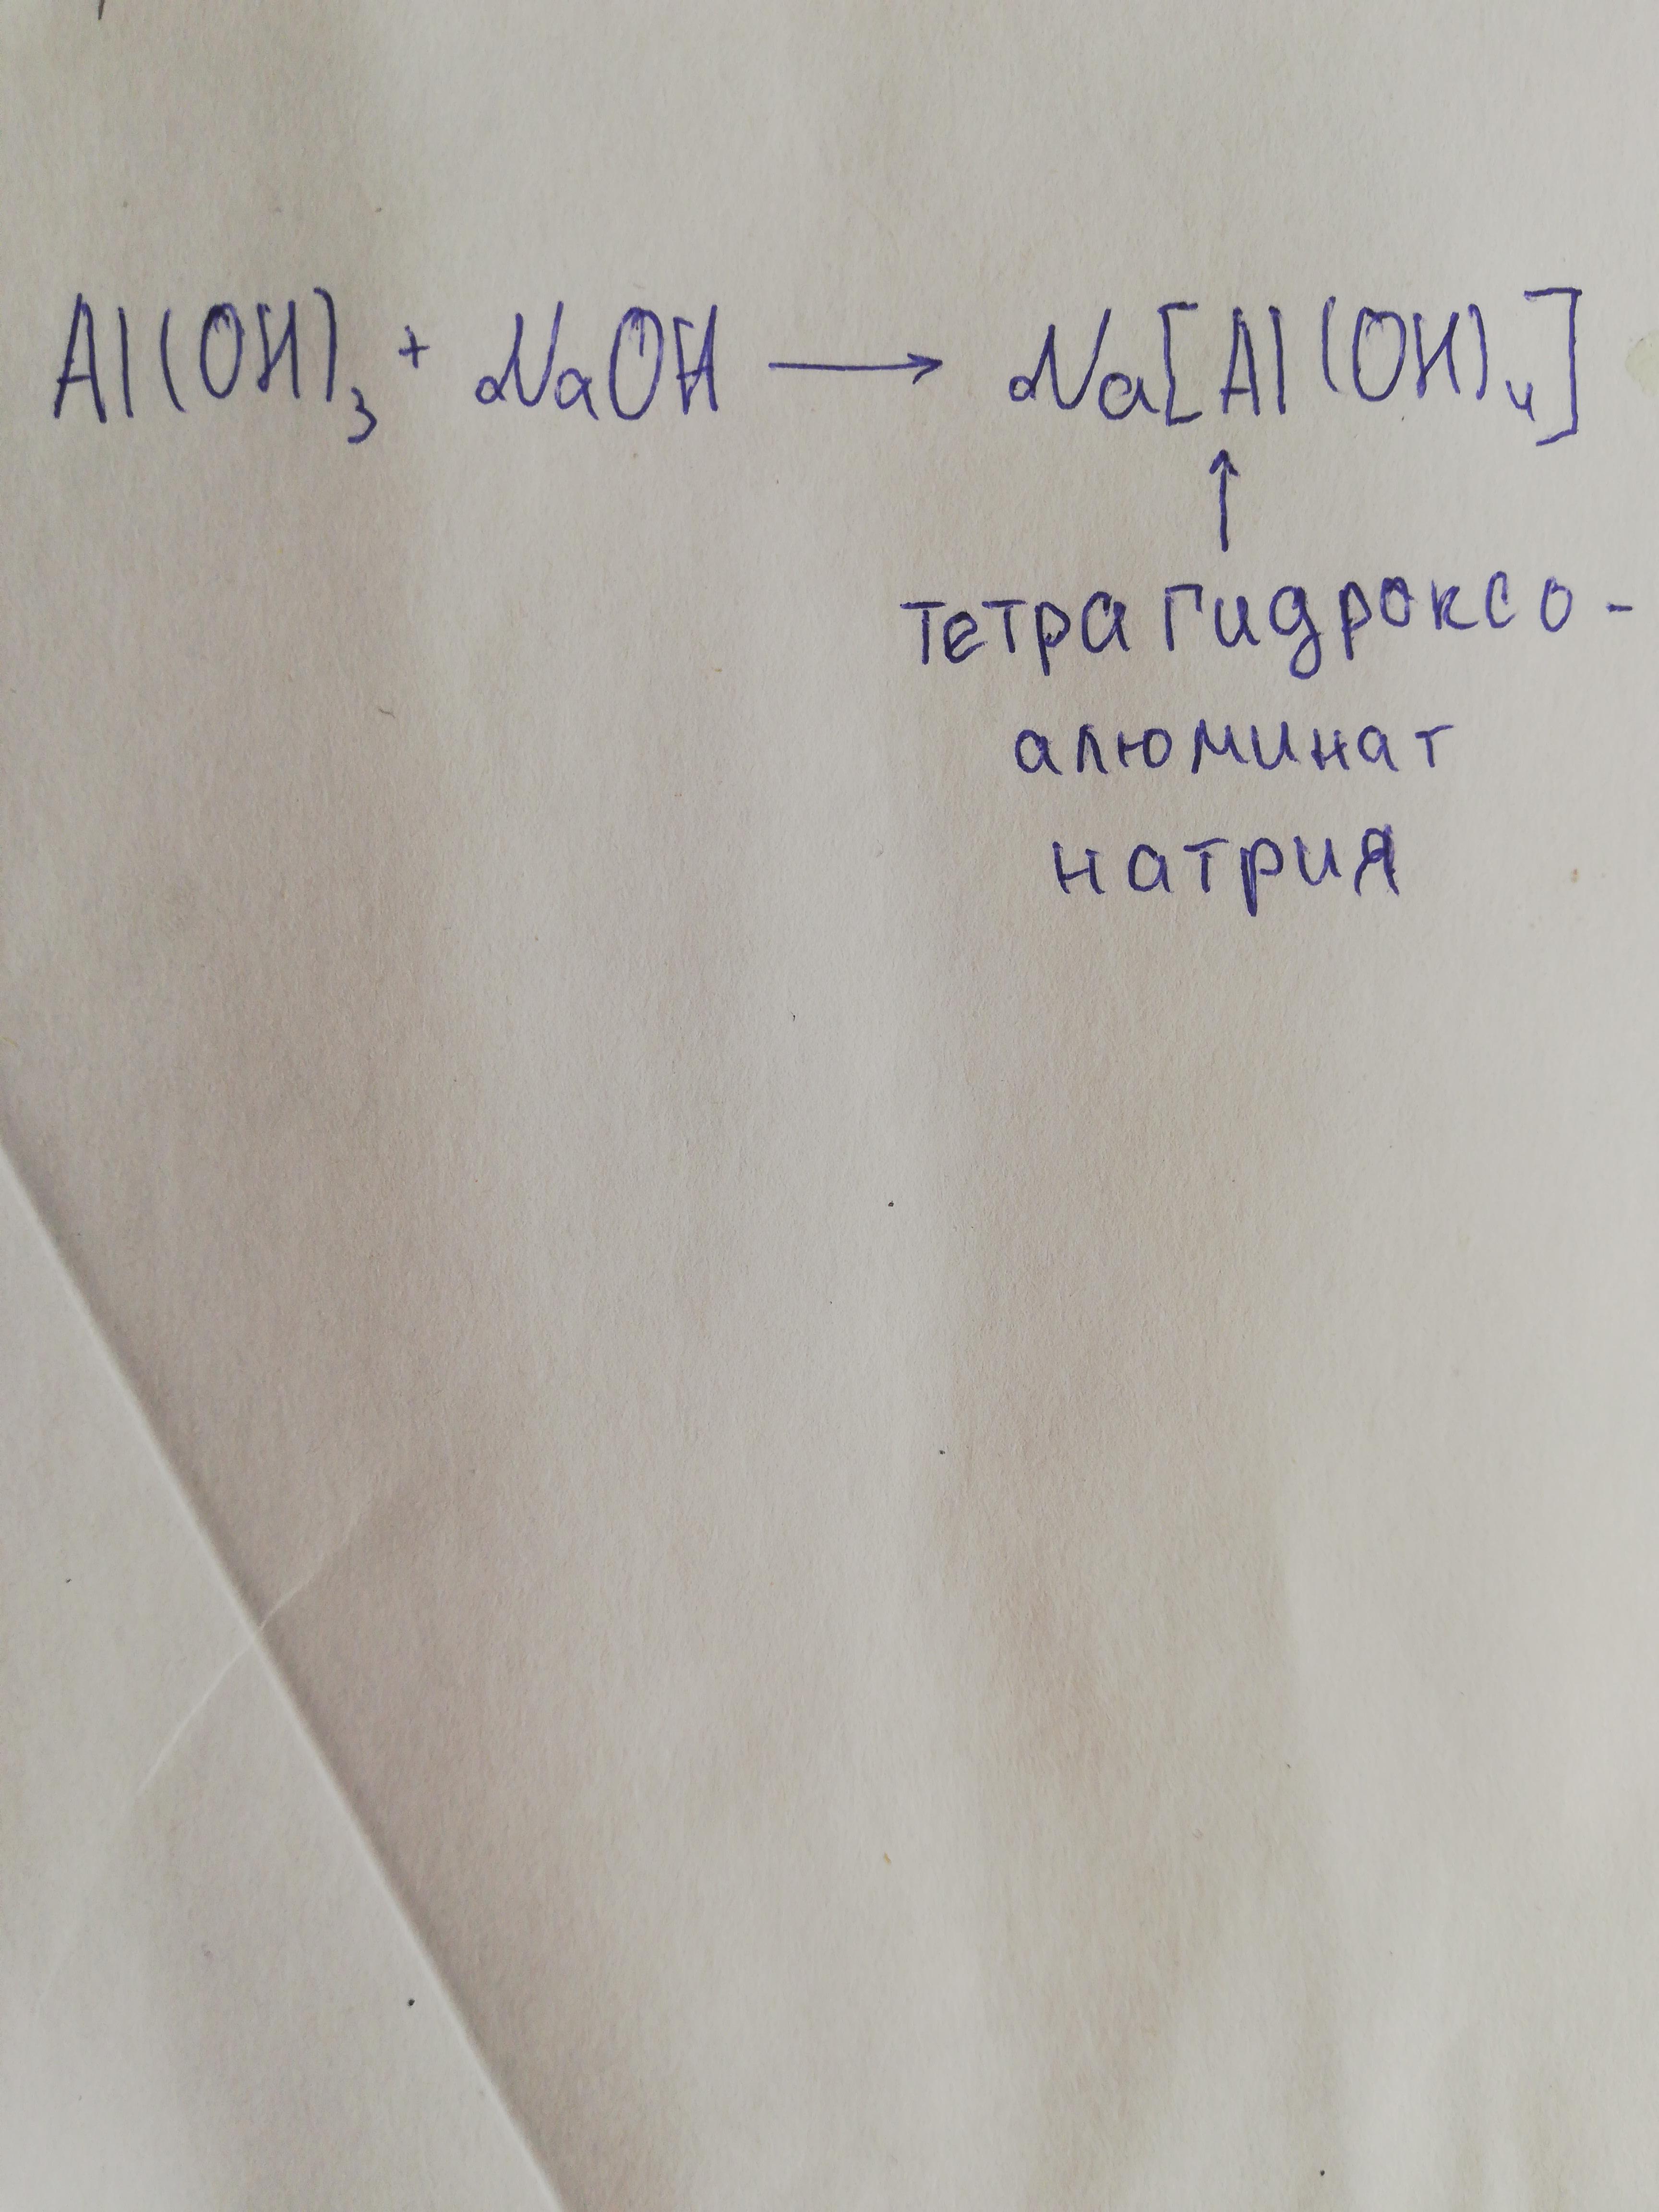 Al(OH)₃ + NaOH ⟶ Na[Al(OH)₄]
↑
тетрагидроксо-
алюминат
натрия